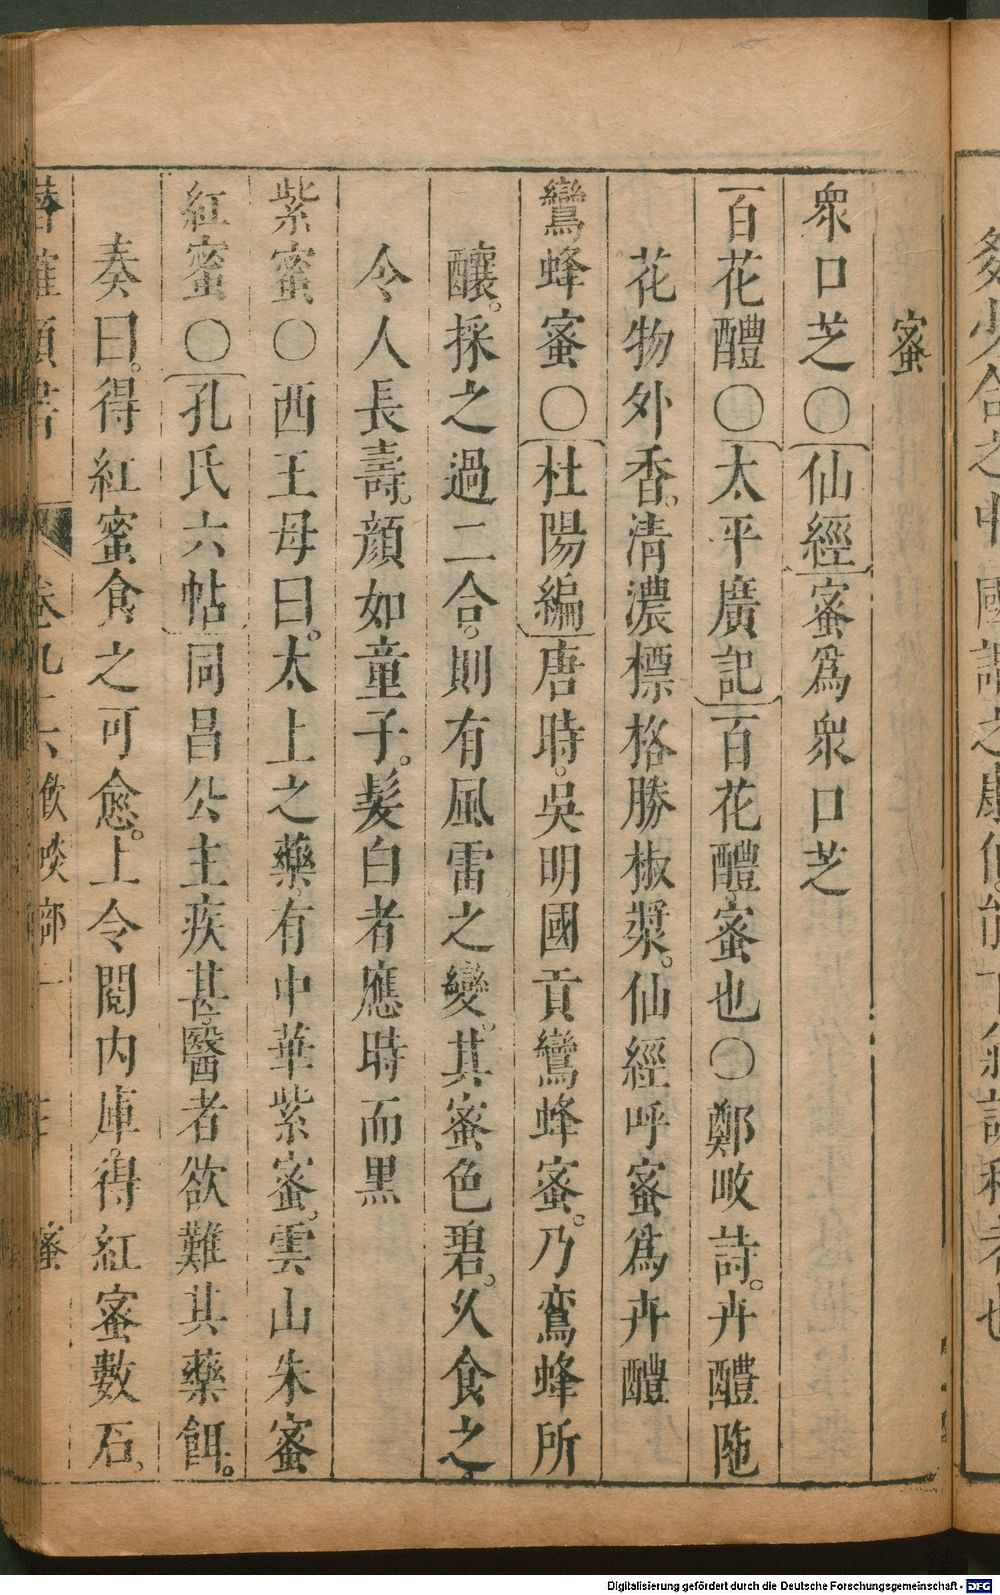 蜜
衆口芝〇仙經蜜爲衆口芝
百花醴〇太平廣記百花醴蜜也〇鄭畋詩。卉醴陁
花物外香。清濃標格勝椒漿。仙經呼蜜爲卉醴
鸞蜂蜜〇杜陽編唐時。吳明國貢鸞蜂蜜。乃鸞蜂所
釀。採之過二合。則有風雷之變。其蜜色碧。久食之
令人長壽。顏如童子。髮白者應時而黑
紫蜜〇西王母曰。太上之藥有中華紫蜜。雲山朱蜜
紅蜜〇孔氏六帖同昌公主疾甚。醫者欲難其藥餌。
奏曰。得紅蜜食之可愈。上令閱内庫得紅蜜數石。
潛確類書 卷九十六飲啖部一 蜜
Digitalisierung gefördert durch die Deutsche Forschungsgemeinschaft - DFG